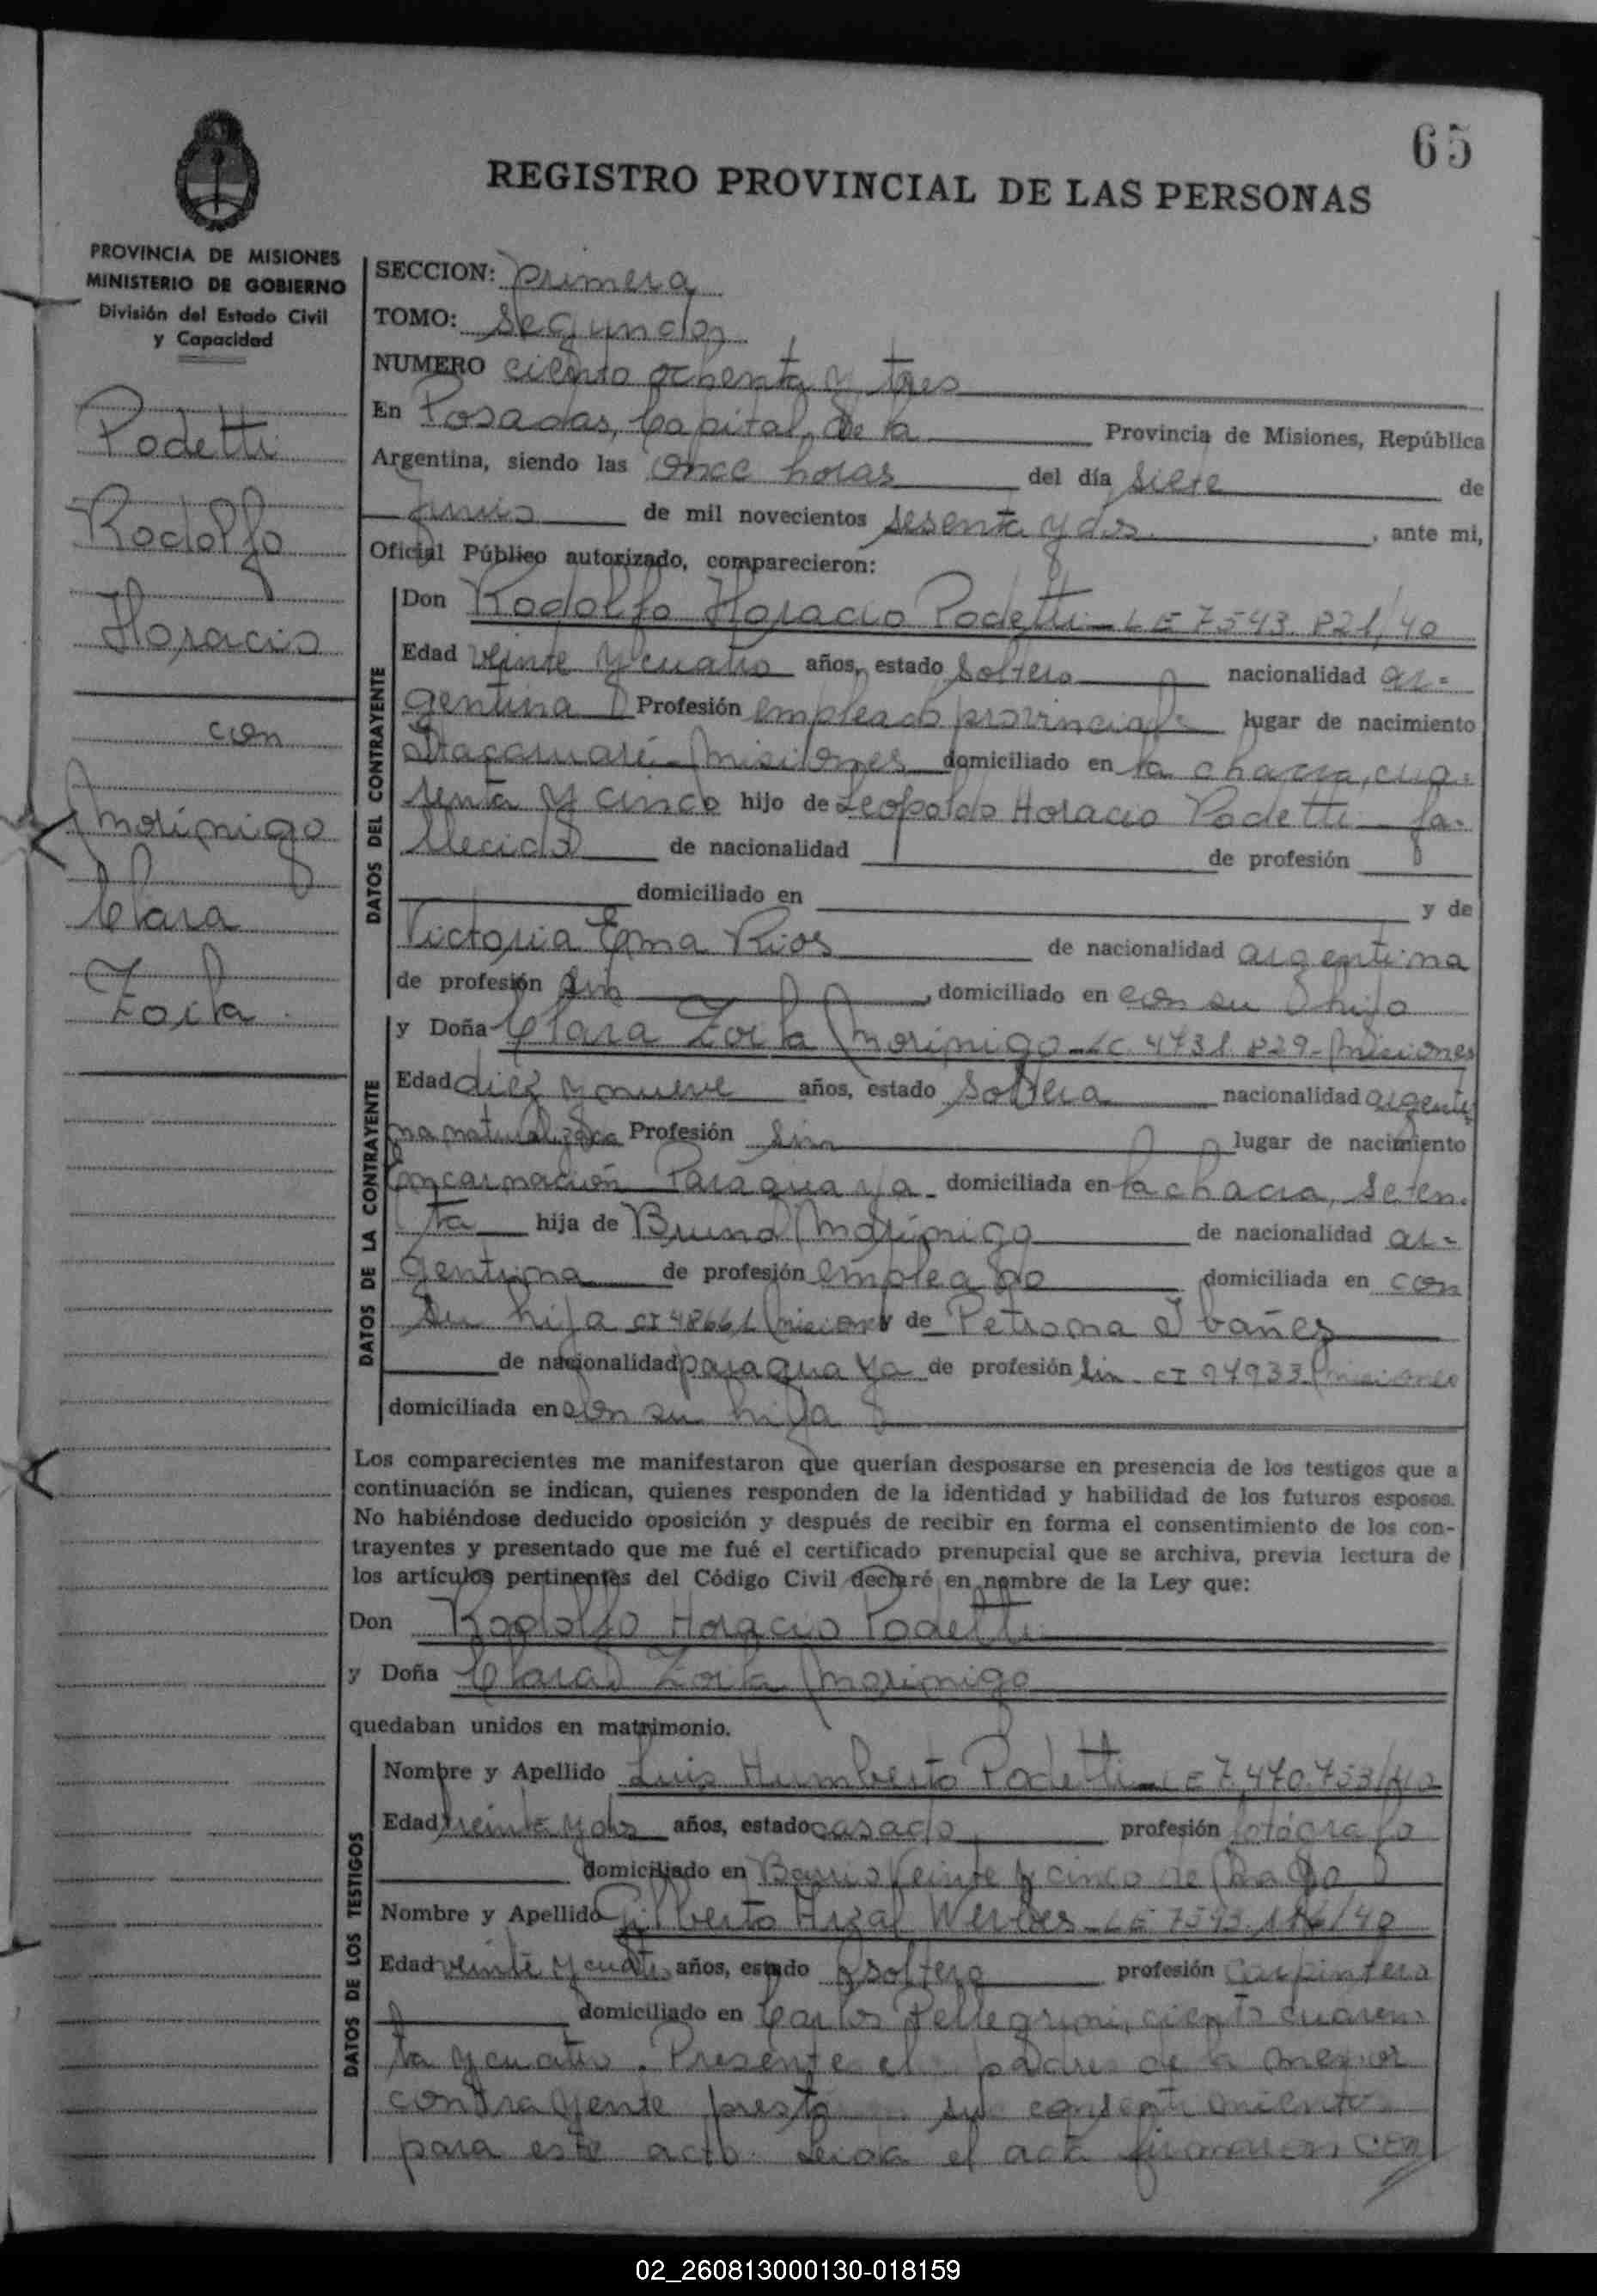 65
REGISTRO PROVINCIAL DE LAS PERSONAS
PROVINCIA DE MISIONES
MINISTERIO DE GOBIERNO
División del Estado Civil
y Capacidad
Podetti
Rodolfo
Horacio
con
Morinigo
Clara
Zoila
SECCION: primera
TOMO: segundo
NUMERO ciento ochenta y tres
En Posadas, Capital, de la Provincia de Misiones, República
Argentina, siendo las once horas del día siete de
Junio de mil novecientos sesenta y dos , ante mi,
Oficial Público autorizado, comparecieron:
DATOS DEL CONTRAYENTE
Don Rodolfo Horacio Podetti - LE 7543.821/40
Edad veinte y cuatro años, estado soltero nacionalidad ar-
gentina Profesión empleado provincial lugar de nacimiento
Itacaruaré - Misiones domiciliado en la chacra, cua-
renta y cinco hijo de Leopoldo Horacio Podetti - fa-
llecido de nacionalidad de profesión
domiciliado en y de
Victoria Ema Rios de nacionalidad argentina
de profesión sin , domiciliado en con su hijo
DATOS DE LA CONTRAYENTE
y Doña Clara Zoila Morinigo - LC. 4731.829 - Misiones
Edad diez y nueve años, estado soltera nacionalidad argenti
na naturalizada Profesión sin lugar de nacimiento
Encarnación Paraguaya - domiciliada en la chacra, seten-
ta hija de Bruno Morinigo de nacionalidad ar-
gentina de profesión empleado domiciliada en con
su hija CI 48661 Misiones y de Petrona Ibañez
de nacionalidad paraguaya de profesión sin - CI 94933 Misiones
domiciliada en con su hija
Los comparecientes me manifestaron que querían desposarse en presencia de los testigos que a
continuación se indican, quienes responden de la identidad y habilidad de los futuros esposos.
No habiéndose deducido oposición y después de recibir en forma el consentimiento de los con-
trayentes y presentado que me fué el certificado prenupcial que se archiva, previa lectura de
los artículos pertinentes del Código Civil declaré en nombre de la Ley que:
Don Rodolfo Horacio Podetti
y Doña Clara Zoila Morinigo
quedaban unidos en matrimonio.
DATOS DE LOS TESTIGOS
Nombre y Apellido Luis Humberto Podetti - LE 7.470.753/40
Edad treinta y dos años, estado casado profesión fotógrafo
domiciliado en Barrio Veinte y cinco de Mayo
Nombre y Apellido Gilberto LE 7543.
Edad veinte y cuatro años, estado soltero profesión carpintero
domiciliado en Carlos Pellegrini, ciento cuaren-
ta y cuatro. Presente el padre de la menor
contrayente presta su consentimiento
para este acto. Leida el acta firmaron con
02_260813000130-018159